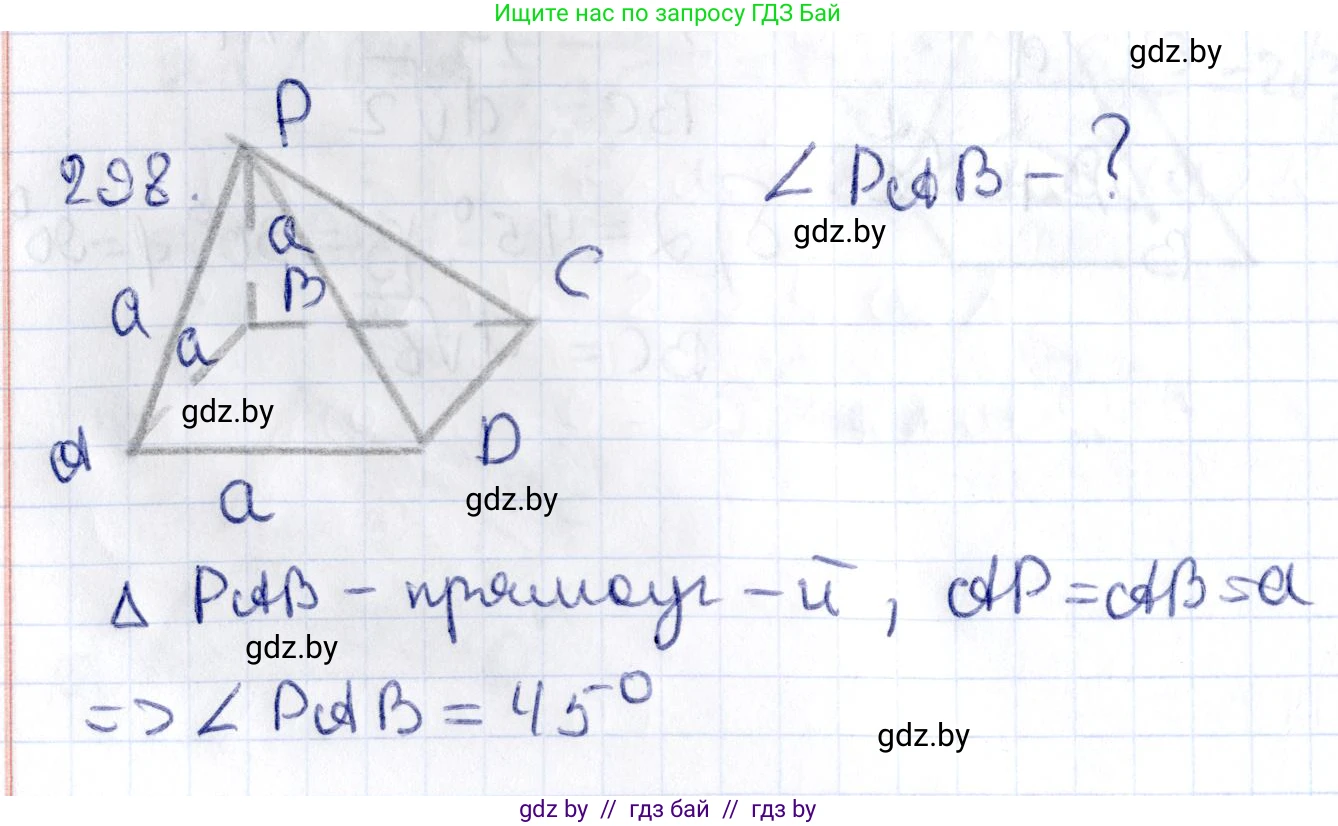 Ищите нас по запросу ГДЗ Бай
gdz.by
P
298.
∠ PAB - ?
gdz.by
a
B
C
a
a
gdz.by
A
D
gdz.by
a
Δ PAB - прямоуг - й, AP = AB = a
gdz.by
=> ∠ PAB = 45°
gdz.by
gdz.by // гдз бай // гдз by